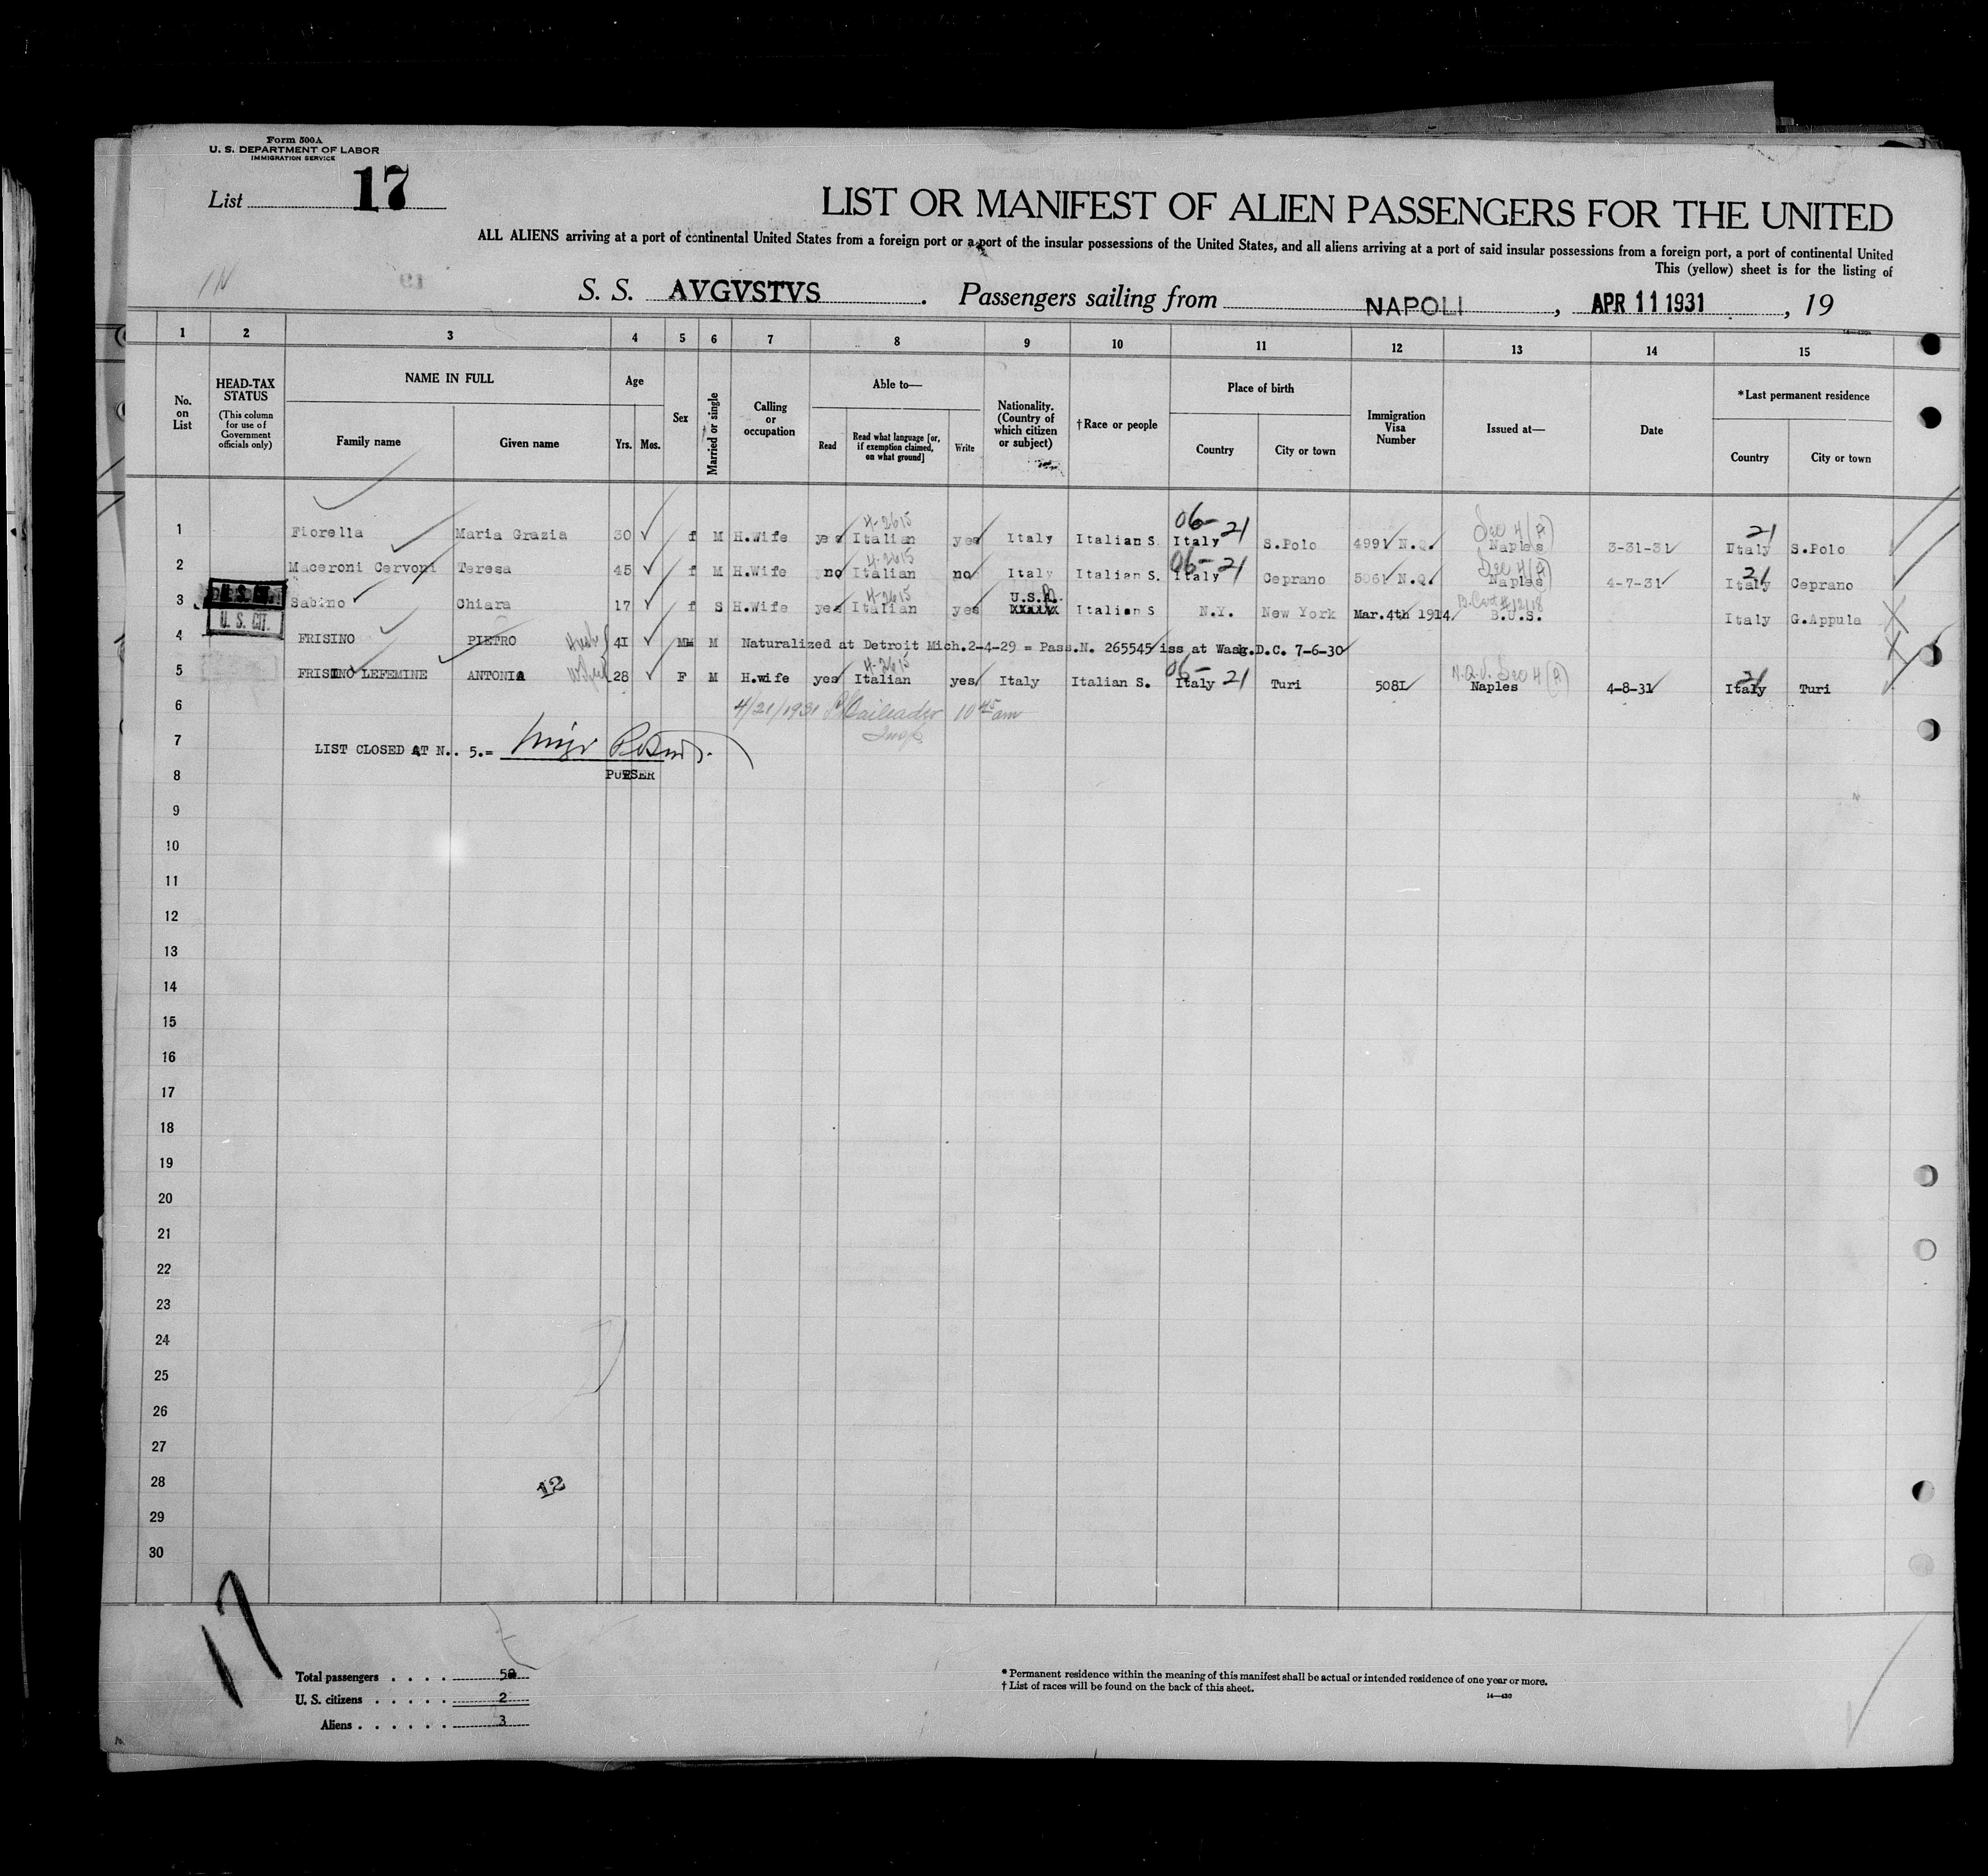 Form 500A
U. S. DEPARTMENT OF LABOR
IMMIGRATION SERVICE
List 17
LIST OR MANIFEST OF ALIEN PASSENGERS FOR THE UNITED
ALL ALIENS arriving at a port of continental United States from a foreign port or a port of the insular possessions of the United States, and all aliens arriving at a port of said insular possessions from a foreign port, a port of continental United
This (yellow) sheet is for the listing of
S. S. AVGVSTVS. Passengers sailing from NAPOLI, APR 11 1931, 19
1 2 3 4 5 6 7 8 9 10 11 12 13 14 15
No. on List
HEAD-TAX STATUS
(This column for use of Government officials only)
NAME IN FULL
Family name
Given name
Age
Yrs. Mos.
Sex
Married or single
Calling or occupation
Able to—
Read
Read what language [or, if exemption claimed, on what ground]
Write
Nationality. (Country of which citizen or subject)
†Race or people
Place of birth
Country
City or town
Immigration Visa Number
Issued at—
Date
*Last permanent residence
Country
City or town
4-2615 06- Sec 4(A)
1 Fiorella Maria Grazia 30 f M H.Wife yes Italian yes Italy Italian S. Italy 21 S.Polo 4991 N.Q. Naples 3-31-31 21 Italy S.Polo
4-2615 06- Sec 4(A)
2 Maceroni Cervoni Teresa 45 f M H.Wife no Italian no Italy Italian S. Italy 21 Ceprano 5061 N.Q. Naples 4-7-31 21 Italy Ceprano
4-2615 U.S.A.
3 Sabino Chiara 17 f S H.Wife yes Italian yes XXXXX Italian S N.Y. New York Mar.4th 1914 B.U.S. Italy G.Appula
U. S. CIT.
4 FRISINO PIETRO 41 M M Naturalized at Detroit Mich.2-4-29 = Pass.N. 265545 iss at Wash.D.C. 7-6-30
4-2615 06- N.Q.V. Sec 4(A)
5 FRISINO LEFEMINE ANTONIA 28 F M H.wife yes Italian yes Italy Italian S. Italy 21 Turi 5081 Naples 4-8-31 21 Italy Turi
6 4/21/1931 10 45 am
Insp
7 LIST CLOSED AT N.. 5.=
8 PURSER
9
10
11
12
13
14
15
16
17
18
19
20
21
22
23
24
25
26
27
28 12
29
30
17
Total passengers 5
U. S. citizens 2
Aliens 3
* Permanent residence within the meaning of this manifest shall be actual or intended residence of one year or more.
† List of races will be found on the back of this sheet.
14—430